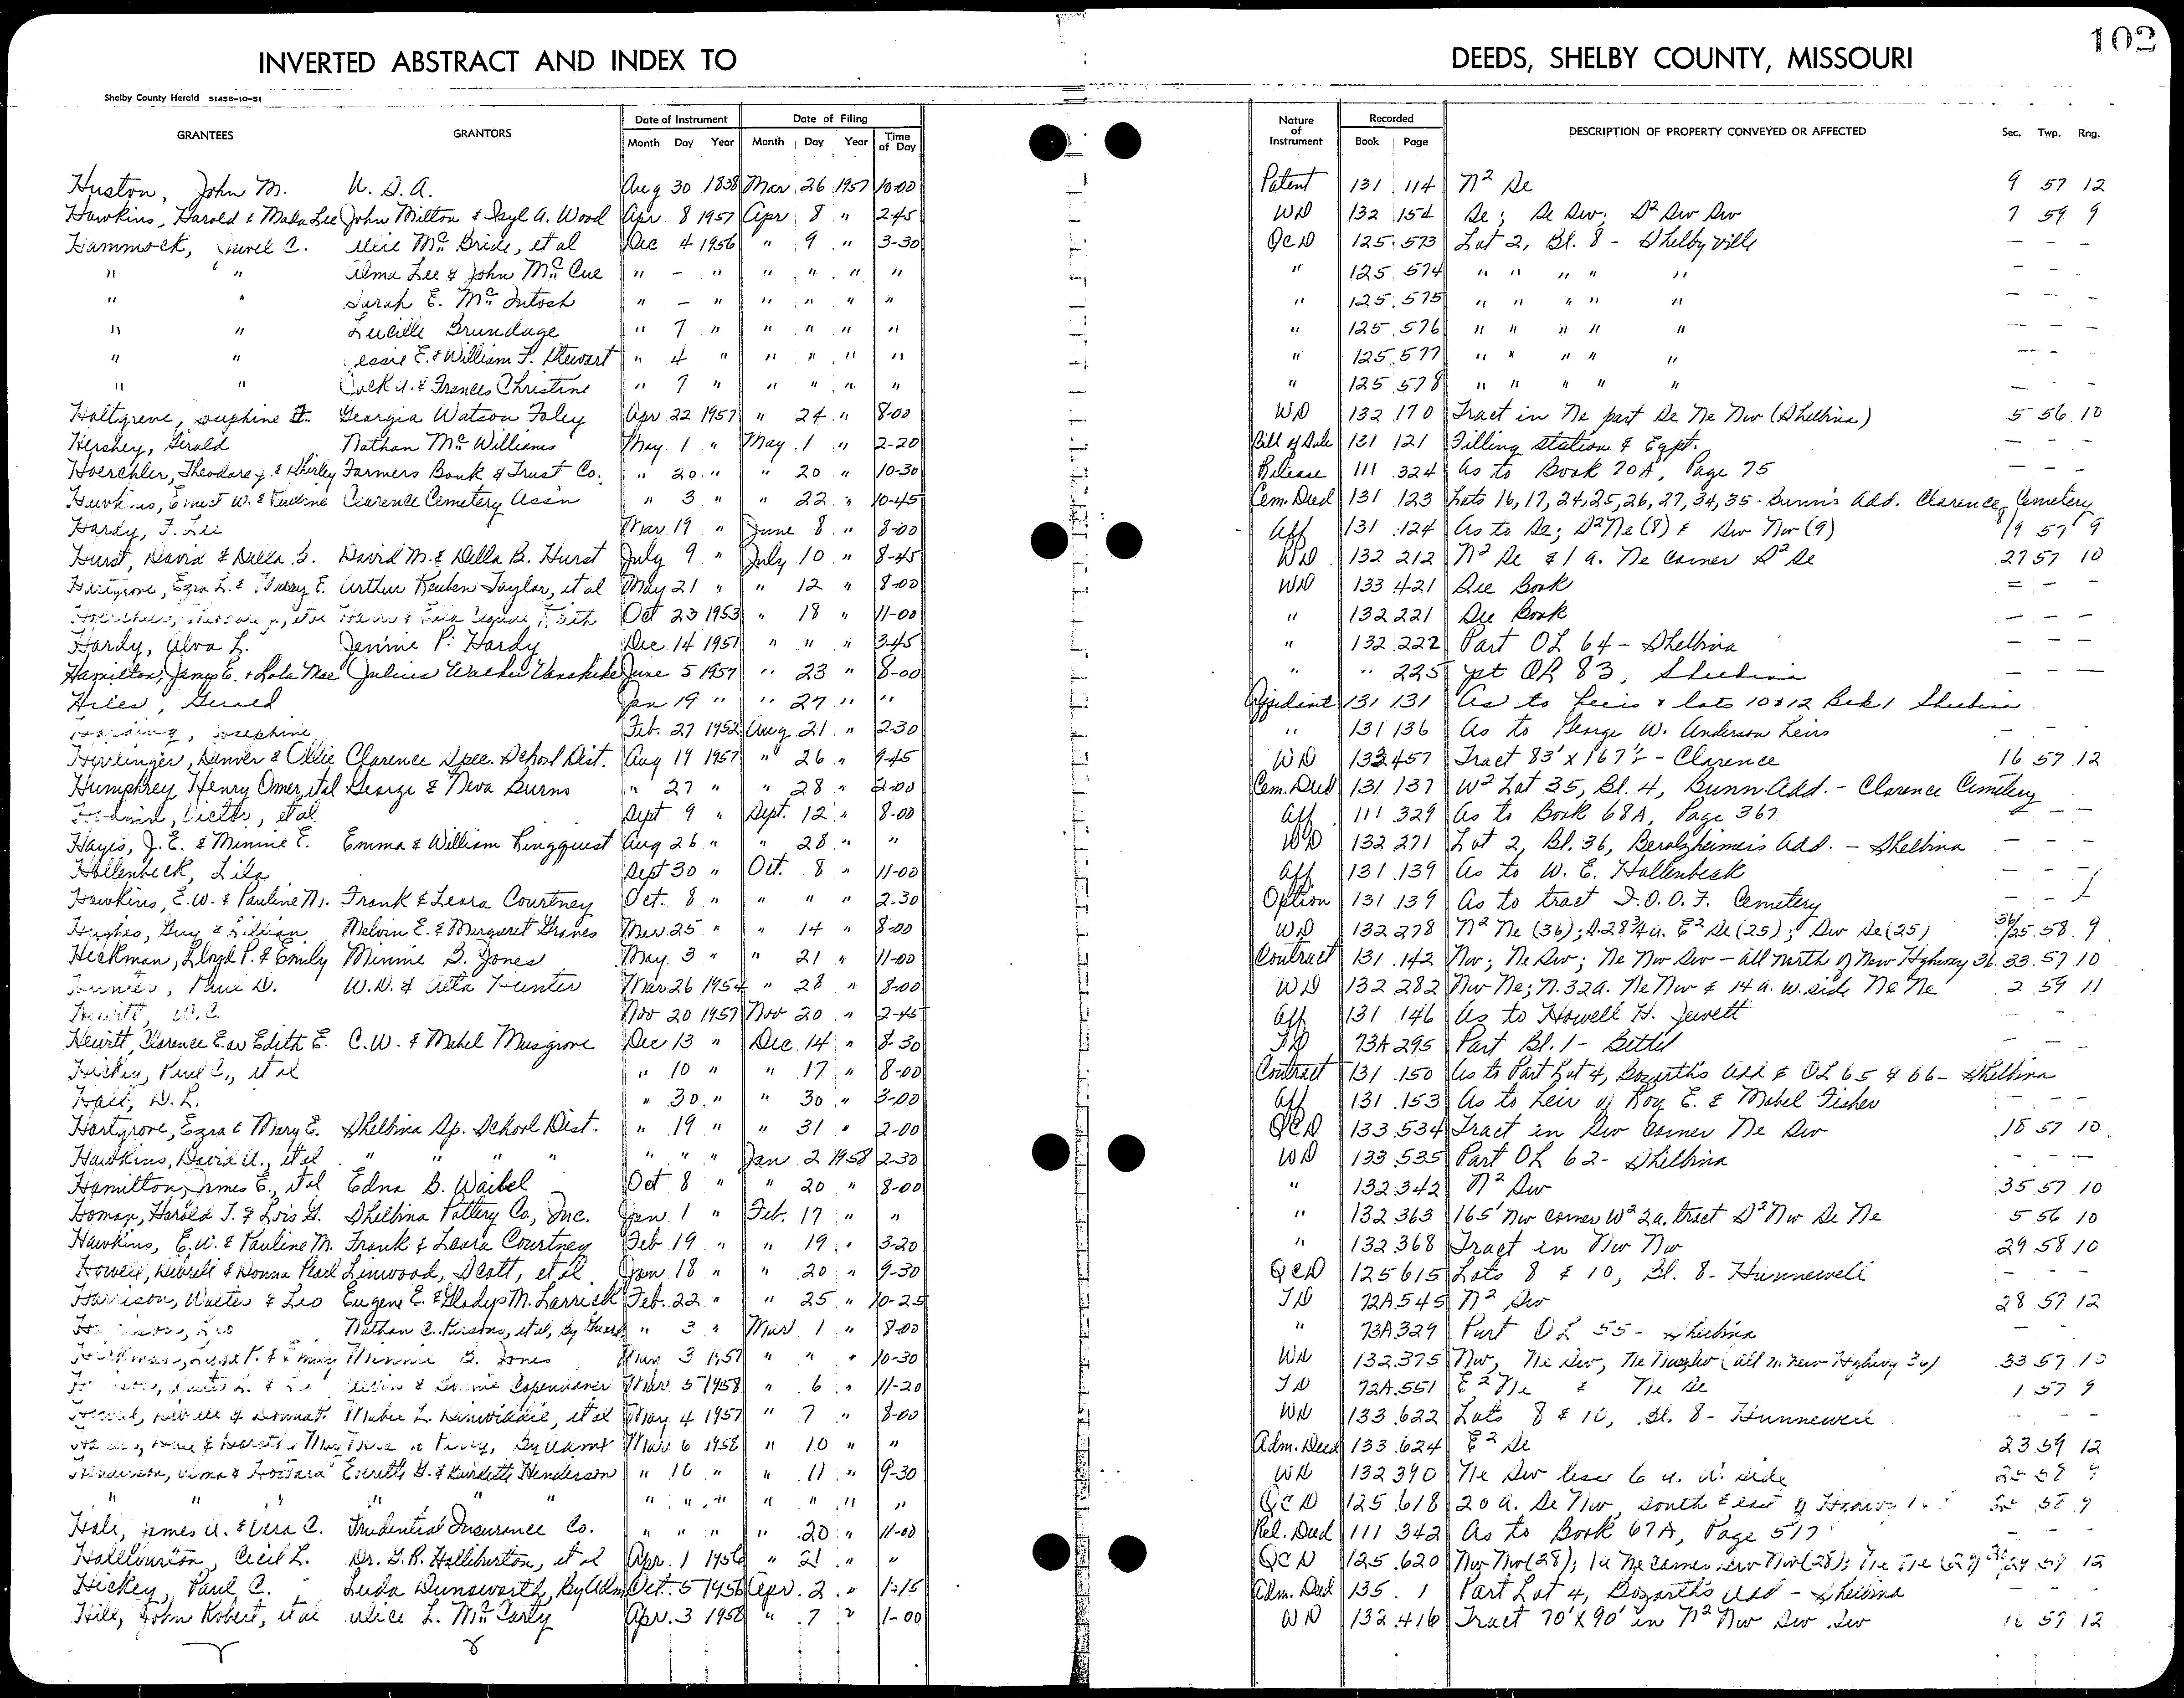 102
INVERTED ABSTRACT AND INDEX TO DEEDS, SHELBY COUNTY, MISSOURI
Shelby County Herald 51458-10-51
GRANTEES GRANTORS Date of Instrument Date of Filing Nature of Instrument Recorded DESCRIPTION OF PROPERTY CONVEYED OR AFFECTED Sec. Twp. Rng.
Month Day Year Month Day Year Time of Day Book Page
Huston, John M. U. S. A. Aug 30 1838 Mar. 26 1957 10-00 Patent 131 114 N² Se 9 57 12
Hawkins, Harold & Mala Lee John Milton & A. Wood Apr 8 1957 Apr 8 " 2-45 WD 132 154 Se; Se Sw; S² Sw Sw 7 59 9
Hammock, Jewel C. Ollie Mc Bride, et al Dec 4 1956 " 9 " 3-30 QCD 125 573 Lot 2, Bl. 8 - Shelbyville - - -
" " Alma Lee & John Mc Cue " - " " " " " " 125 574 " " " " " - - -
" " Sarah E. Mc Intosh " - " " " " " " 125 575 " " " " " - - -
" " Lucille Brundage " 7 " " " " " " 125 576 " " " " " - - -
" " Jessie E. & William F. Stewart " 4 " " " " " " 125 577 " " " " " - - -
" " Jack U. & Frances Christine " 7 " " " " " " 125 578 " " " " " - - -
Holtgreve, Josephine Georgia Watson Foley Apr 22 1957 " 24 " 8-00 WD 132 170 Tract in Ne part Se Ne Nw (Shelbina) 5 56 10
Hershey, Gerald Nathan Mc Williams May 1 " May 1 " 2-20 Bill of Sale 131 121 Filling station & Eqpt. - - -
Hoerchler, Theodore J. & Shirley Farmers Bank & Trust Co. " 20 " " 20 " 10-30 Release 111 324 As to Book 70A, Page 75 - - -
Hawkins, Ernest W. & Pauline Clarence Cemetery Ass'n " 3 " " 22 " 10-45 Cem. Deed 131 123 Lots 16, 17, 24, 25, 26, 27, 34, 35 - Bunn's Add. Clarence Cemetery
Hardy, F. Lee Mar 19 " June 8 " 8-00 Aff 131 124 As to Se; S² Ne (8) & Sw Nw (9) 8/9 57 9
Hurst, David & Della B. David M. & Della B. Hurst July 9 " July 10 " 8-45 WD 132 212 N² Se & 1 a. Ne corner S² Se 27 57 10
Hartgrove, Ezra L. & Mary E. Arthur Reuben Taylor, et al May 21 " " 12 " 8-00 WD 133 421 See Book - - -
Oct 23 1953 " 18 " 11-00 " 132 221 See Book - - -
Hardy, Alva L. Jennie P. Hardy Dec 14 1951 " " " 3-45 " 132 222 Part OL 64 - Shelbina - - -
Hamilton, James E. & Lola Mae Julius Walker Vanskike June 5 1957 " 23 " 8-00 " " 225 pt OL 83, Shelbina - -
Hiles, Gerald Jan 19 " " 27 " " Affidavit 131 131 As to heirs & lots 10 & 12 Blk 1 Shelbina
Josephine Feb. 27 1952 Aug 21 " 2-30 " 131 136 As to George W. Anderson heirs - -
Herrlinger, Denver & Ollie Clarence Spec. School Dist. Aug 19 1957 " 26 " 9-45 WD 133 457 Tract 83' x 167½ - Clarence 16 57 12
Humphrey, Henry Omer, et al George & Neva Burns " 27 " " 28 " 2-00 Cem. Deed 131 137 W² Lot 35, Bl. 4, Bunn Add. - Clarence Cemetery
et al Sept 9 " Sept. 12 " 8-00 Aff 111 329 As to Book 68A, Page 367 - -
Hayes, J. E. & Minnie E. Emma & William Ringquist Aug 26 " " 28 " " WD 132 271 Lot 2, Bl. 36, Berolzheimer's Add. - Shelbina - - -
Hollenbeck, Lila Sept 30 " Oct. 8 " 11-00 Aff 131 139 As to W. E. Hollenbeck - - -
Hawkins, E. W. & Pauline M. Frank & Leora Courtney Oct. 8 " " " " 2-30 Option 131 139 As to tract I.O.O.F. Cemetery - - -
Hughes, Guy & Lillian Melvin E. & Margaret Graves Mar 25 " " 14 " 8-00 WD 132 278 N² Ne (36); S. 28¾ a. E² Se (25); Sw Se (25) 36/25 58 9
Hickman, Lloyd P. & Emily Minnie B. Jones May 3 " " 21 " 11-00 Contract 131 142 Nw; Ne Sw; Ne Nw Sw - all north of New Highway 36 33 57 10
Hunter, Paul D. W. D. & Alta Hunter Mar 26 1954 " 28 " 8-00 WD 132 282 Nw Ne; N. 32 a. Ne Nw & 14 a. W. side Ne Ne 2 59 11
W. C. Nov 20 1957 Nov 20 " 2-45 Aff 131 146 As to Howell H. Jewett - - -
Hewitt, Clarence E. or Edith E. C. W. & Mabel Musgrove Dec 13 " Dec. 14 " 8-30 TD 73A 295 Part Bl. 1 - Bethel - - -
Hickey, Paul C., et al " 10 " " 17 " 8-00 Contract 131 150 As to Part Lot 4, Bozarth's Add & OL 65 & 66 - Shelbina
Hall, D. L. " 30 " " 30 " 3-00 Aff 131 153 As to heir of Roy E. & Mabel Fisher - - -
Hartgrove, Ezra & Mary E. Shelbina Sp. School Dist. " 19 " " 31 " 2-00 QCD 133 534 Tract in Sw corner Ne Sw 18 57 10
Hawkins, David A., et al " " " " " " " Jan 2 1958 2-30 WD 133 535 Part OL 62 - Shelbina - - -
Hamilton, James E., et al Edna B. Waibel Oct 8 " " 20 " 8-00 " 132 342 N² Sw 35 57 10
Homan, Harold T. & Lois G. Shelbina Pottery Co., Inc. Jan 1 " Feb. 17 " " " 132 363 165' Nw corner W² 2a. tract S² Nw Se Ne 5 56 10
Hawkins, E. W. & Pauline M. Frank & Leora Courtney Feb 19 " " 19 " 3-20 " 132 368 Tract in Nw Nw 29 58 10
Howell, & Donna Pearl Linwood, Scott, et al Jan 18 " " 20 " 9-30 QCD 125 615 Lots 8 & 10, Bl. 8 - Hunnewell - - -
Harrison, Walter & Leo Eugene E. & Gladys M. Larrick Feb. 22 " " 25 " 10-25 TD 72A 545 N² Sw 28 57 12
Leo Nathan C. Parsons, et al, by Guard " 3 " Mar 1 " 8-00 " 73A 329 Part OL 55 - Shelbina - -
Hickman, P. & Emily Minnie B. Jones May 3 1957 " " " 10-30 WD 132 375 Nw, Ne Sw, Ne Nw Sw (all n. new Highway 36) 33 57 10
Mar. 5 1958 " 6 " 11-20 TD 72A 551 E² Ne & Ne Se 1 57 9
et al May 4 1957 " 7 " 8-00 WD 133 622 Lots 8 & 10, Bl. 8 - Hunnewell - - -
Mar 6 1958 " 10 " " Adm. Deed 133 624 E² Se 23 59 12
Henderson, Everette G. & Burdette Henderson " 10 " " 11 " 9-30 WD 132 390 Ne Sw less 6 a. W. side
" " " " " " " " " " " " " QCD 125 618 20 a. Se Nw, south & east of
Hale, James A. & Vera C. Prudential Insurance Co. " " " " 20 " 11-00 Rel. Deed 111 342 As to Book 67A, Page 517 - - -
Halliburton, Cecil L. Dr. G. R. Halliburton, et al Apr. 1 1956 " 21 " " QCD 125 620 Nw Nw (28); 1a Ne corner Sw Nw (28); Ne Ne (29) 59 12
Hickey, Paul C. Leda Dunsworth, By Adm Oct. 5 1956 Apr. 2 " 1-15 Adm. Deed 135 1 Part Lot 4, Bozarth's Add - Shelbina - -
Hill, John Robert, et al Alice L. Mc Carty Apr. 3 1958 " 7 " 1-00 WD 132 416 Tract 70' x 90' in N² Nw Sw Sw 16 57 12